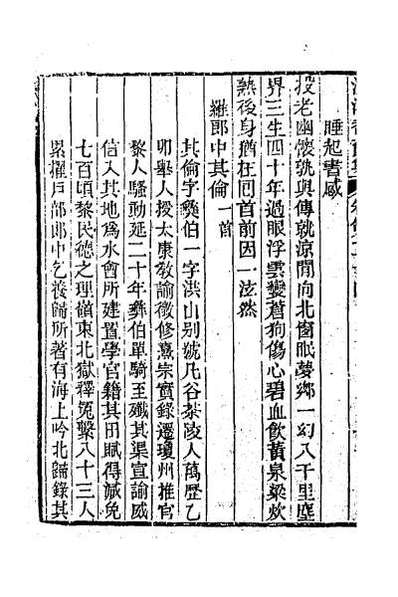 睡起書感
投老幽懷孰與傳就涼閒向北窗眠夢鄉一幻八千里塵
界三生四十年過眼浮雲變蒼狗傷心碧血飲黃泉粱炊
熟後身猶在回首前因一泫然
羅郎中其倫一首
其倫字彝伯一字洪山別號凡谷茶陵人萬歷乙
卯舉人授太康教諭徵修熹宗實錄遷瓊州推官
黎人騷動延二十年彝伯單騎至殲其渠宣諭威
信入其地爲水會所建置學官籍其田賦得減免
七百頃黎民德之理嶺東北獄釋冤繫八十三人
累擢戶部郎中乞養歸所著有海上吟北歸錄其